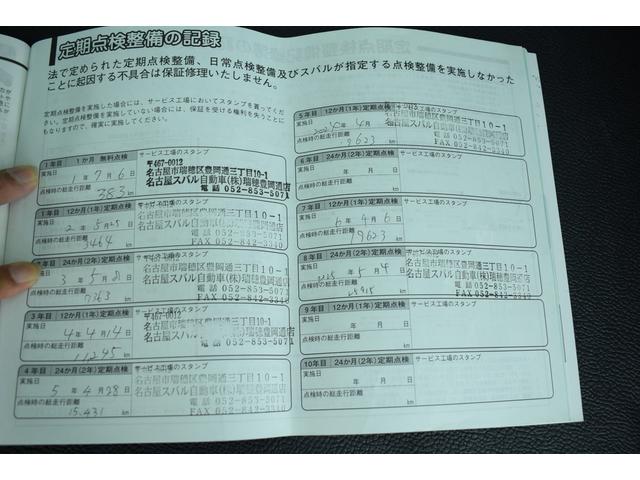 定期点検整備の記録
法で定められた定期点検整備、日常点検整備及びスバルが指定する点検整備を実施しなかった
ことに起因する不具合は保証修理いたしません。
定期点検整備を実施した場合には、サービス工場においてスタンプを貰ってくだ
さい。定期点検整備を実施していない場合には、保証を受ける権利を失うことに
もなりますので、確実に実施してください。
1年目 1か月 無料点検 サービス工場のスタンプ
実施日 1年7月6日
点検時の総走行距離 383 km
〒467-0012
名古屋市瑞穂区豊岡通三丁目10-1
名古屋スバル自動車(株)瑞穂豊岡通店
電話 052-853-5071
1年目 12か月(1年)定期点検 サービス工場のスタンプ
実施日 2年5月25日
点検時の総走行距離 3464 km
名古屋市瑞穂区豊岡通三丁目10-1
名古屋スバル自動車(株)瑞穂豊岡通店
電話 052-853-5071
FAX 052-842-3340
24か月(2年)定期点検 サービス工場のスタンプ
実施日 3年5月 日
点検時の総走行距離 7363 km
名古屋市瑞穂区豊岡通三丁目10-1
名古屋スバル自動車(株)瑞穂豊岡通店
電話 052-853-5071
FAX 052-842-3340
3年目 12か月(1年)定期点検 サービス工場のスタンプ
実施日 4年4月14日
点検時の総走行距離 11245 km
〒467-0012
名古屋市瑞穂区豊岡通三丁目10-1
名古屋スバル自動車(株)瑞穂豊岡通店
電話 052-853-5071
4年目 24か月(2年)定期点検 サービス工場のスタンプ
実施日 5年4月28日
点検時の総走行距離 15,431 km
名古屋市瑞穂区豊岡通三丁目10-1
名古屋スバル自動車(株)瑞穂豊岡通店
電話 052-853-5071
FAX 052-842-3340
5年目 12か月(1年)定期点検 サービス工場のスタンプ
実施日 年4月 日
点検時の総走行距離 19623 km
名古屋市瑞穂区豊岡通三丁目10-1
名古屋スバル自動車(株)瑞穂豊岡通店
電話 052-853-5071
6年目 24か月(2年)定期点検 サービス工場のスタンプ
実施日 年 月 日
点検時の総走行距離 km
7年目 12か月(1年)定期点検 サービス工場のスタンプ
実施日 6年4月6日
点検時の総走行距離 19623 km
名古屋市瑞穂区豊岡通三丁目10-1
名古屋スバル自動車(株)瑞穂豊岡通店
電話 052-853-5071
FAX 052-842-3340
8年目 24か月(2年)定期点検 サービス工場のスタンプ
実施日 年5月4日
点検時の総走行距離 km
名古屋市瑞穂区豊岡通三丁目10-1
名古屋スバル自動車(株)瑞穂豊岡通店
電話 052-853-5071
FAX 052-842-3340
9年目 12か月(1年)定期点検 サービス工場のスタンプ
実施日 年 月 日
点検時の総走行距離 km
10年目 24か月(2年)定期点検 サービス工場のスタンプ
実施日 年 月 日
点検時の総走行距離 km